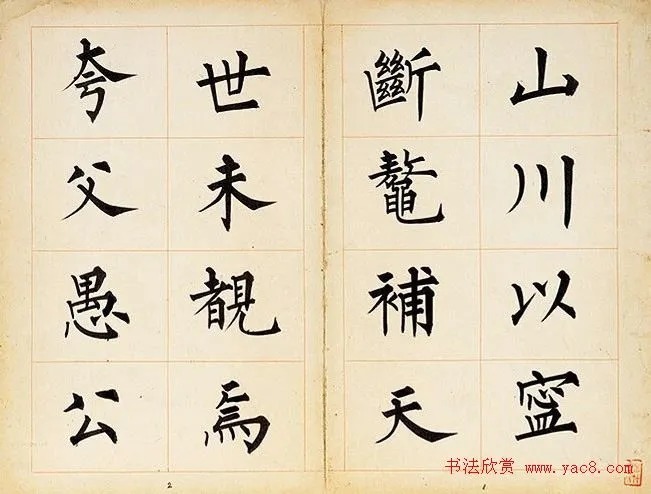 山川以寍
斷鼇補天
世未覩焉
夸父愚公
2
1
书法欣赏 www.yac8.com